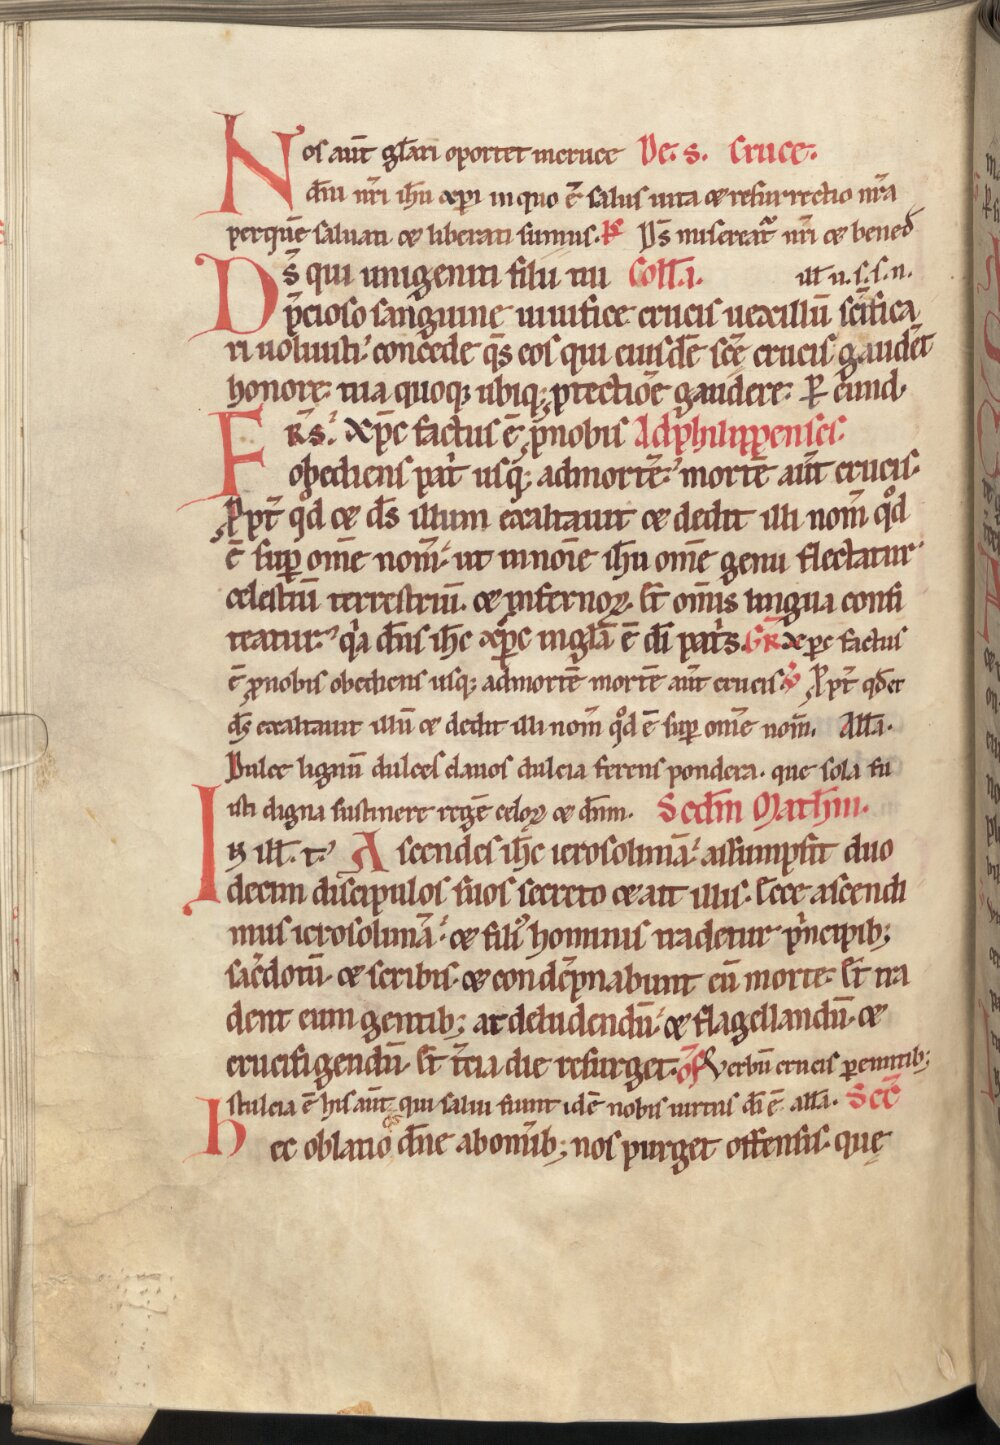 Nos aut̄ gl̄ari oportet in cruce De. s. Cruce.
dn̄i nr̄i ih̄u xp̄i in quo ē salus uita ⁊ resurrectio nr̄a
per quē saluati ⁊ liberati sumus. Ps̄ Ds̄ misereat᷑ nr̄i ⁊ bened̄
Ds̄ qui unigeniti filii tui Coll̄a. ill̄ n. s. s. n.
p̄cioso sanguine uiuifice crucis uexillū sc̄ifica
ri uoluisti. concede q̄s eos qui eiusdē sc̄e crucis gaudēt
honore. tua quoq; ubiq; ꝓtectiōe gaudere. ꝑ eund.
FRS̄. Xp̄c factus ē ꝓ nobis Ad philippenses.
obediens pat̄ usq; ad mortē. mortē aut̄ crucis.
ꝓpt̄ qd̄ ⁊ ds̄ illum exaltauit ⁊ dedit illi nom̄ qd̄
ē suꝑ om̄e nom̄. ut in noīe ih̄u om̄e genu flectatur
celestiū terrestriū. ⁊ infernoꝝ. Et om̄is lingua confi
teatur. q̇a dn̄s ih̄c xp̄c in gl̄a ē dī pat̄s. GR̄ Xp̄c factus
ē ꝓ nobis obediens usq; ad mortē mortē aut̄ crucis. V̄ ꝓpt̄ qd̄ et
ds̄ exaltauit illū ⁊ dedit illi nom̄ qd̄ ē suꝑ om̄e nom̄. All̄a.
Dulce lignū dulces clauos dulcia ferens pondera. que sola fu
isti digna sustinere regē celoꝝ ⁊ dn̄m. Secd̄m Math̄m.
IN ill̄. t. Ascendes ih̄c ierosolimā. assumpsit duo
decim discipulos suos secreto ⁊ ait illis. Ecce ascendi
mus ierosolimā. ⁊ filiꝰ hominis tradetur p̄ncipib;
sac̄dotū. ⁊ scribis. ⁊ condēpnabunt eū morte. Et tra
dent eum gentib; ad deludendū. ⁊ flagellandū. ⁊
crucifigendū. Et t̄cia die resurget. Of̄ Verbū crucis ꝑeuntib;
stulcia ē his aut̄ qui salui fiunt idē nobis uirtus dī ē. all̄a. Sec̄
Hec oblatio dn̄e ab om̄ib; nos purget offensis. quę